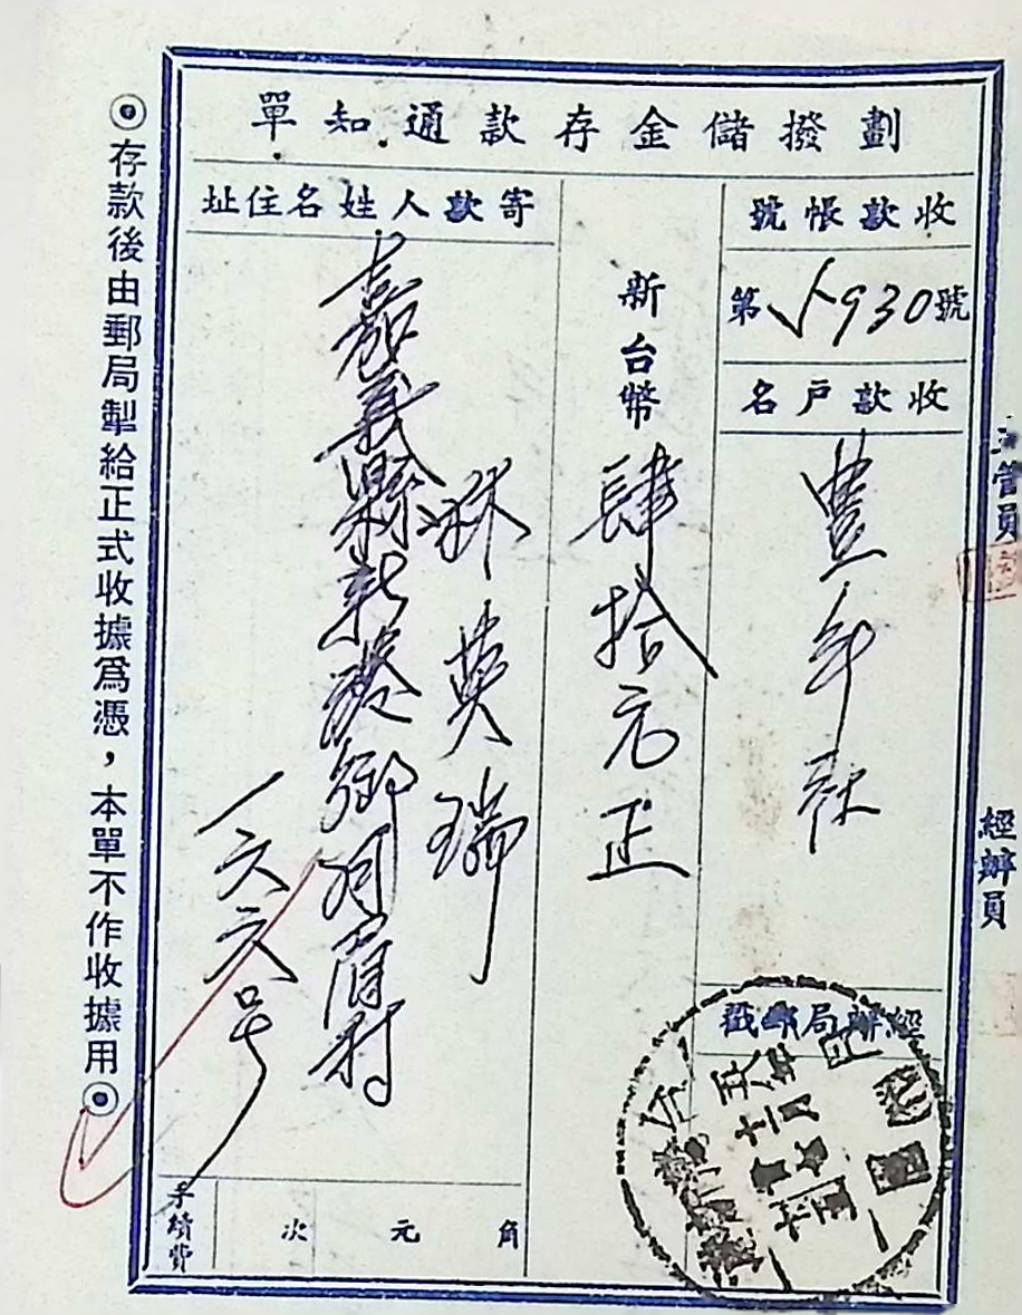 劃撥儲金存款通知單
收款帳號
第5930號
收款戶名
豐年社
經辦局郵戳
新台幣
肆拾元正
寄款人姓名住址
林英瑞
嘉義縣新港鄉月眉村
一六六号
手續費
次 元 角
◎存款後由郵局掣給正式收據為憑，本單不作收據用◎
主管員
經辦員